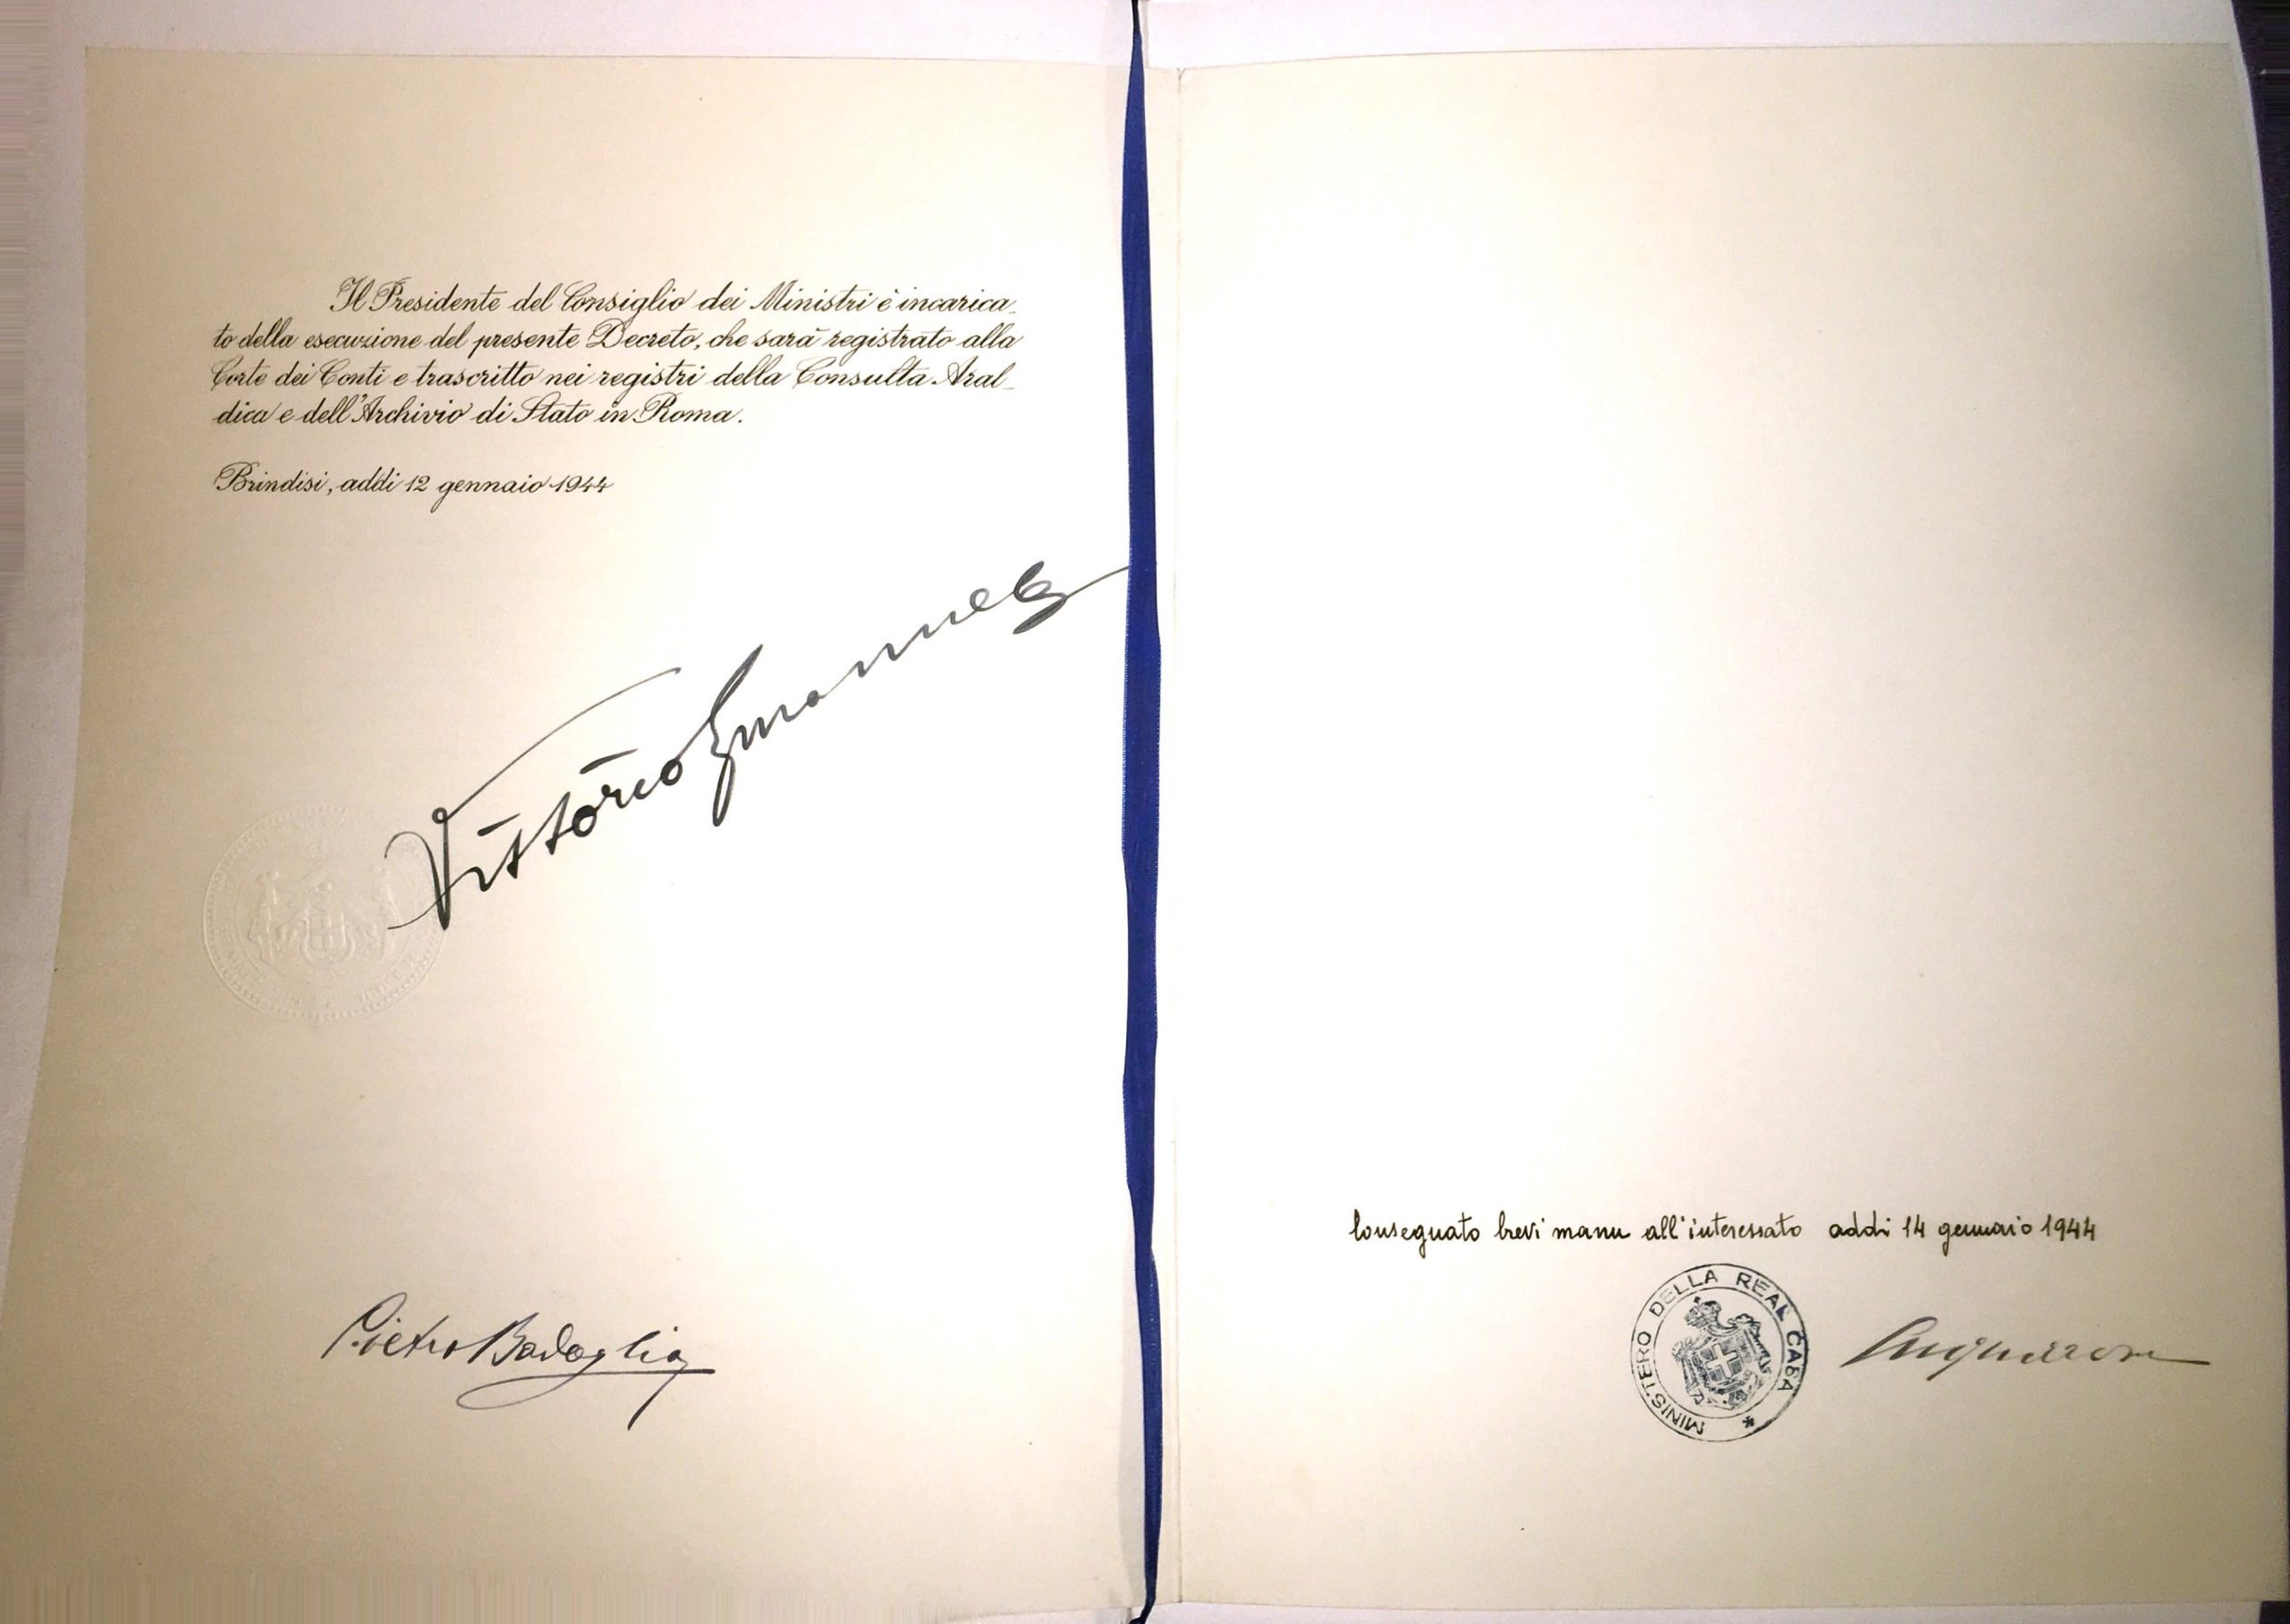 Il Presidente del Consiglio dei Ministri è incarica-
to della esecuzione del presente Decreto, che sarà registrato alla
Corte dei Conti e trascritto nei registri della Consulta Aral-
dica e dell'Archivio di Stato in Roma.
Brindisi, addi 12 gennaio 1944
Vittorio Emanuele
Pietro Badoglio
Consegnato brevi manu all'interessato addi 14 gennaio 1944
MINISTERO DELLA REAL CASA *